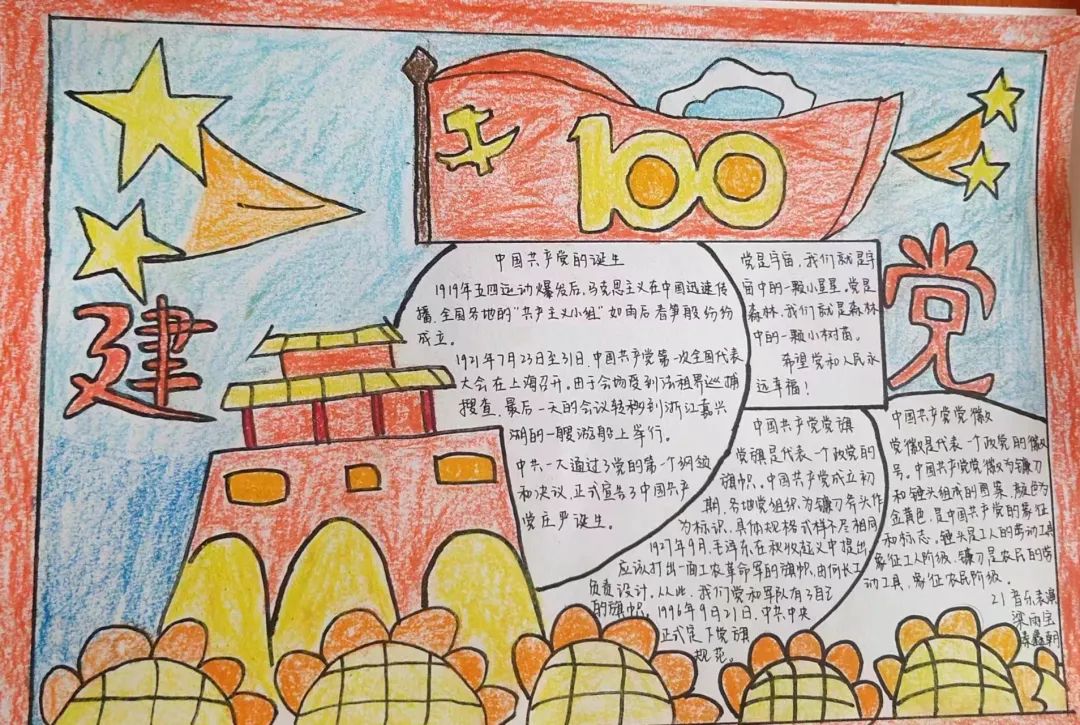 100
建
党
中国共产党的诞生
1919年五四运动爆发后,马克思主义在中国迅速传
播,全国各地的“共产主义小组”如雨后春笋般纷纷
成立。
1921年7月23日至31日,中国共产党第一次全国代表
大会在上海召开。由于会场受到法租界巡捕
搜查,最后一天的会议转移到浙江嘉兴
湖的一艘游船上举行。
中共一大通过了党的第一个纲领
和决议,正式宣告了中国共产
党庄严诞生。
党是宇宙,我们就是宇
宙中的一颗小星星,党是
森林,我们就是森林
中的一颗小树苗。
希望党和人民永
远幸福!
中国共产党党旗
党旗是代表一个政党的
旗帜,中国共产党成立初
期,各地党组织,为镰刀斧头作
为标识,具体规格式样不尽相同
1927年9月,毛泽东在秋收起义中提出
应该打出一面工农革命军的旗帜,由何长工
负责设计。从此,我们党和军队有了自己
的旗帜。1996年9月21日,中共中央
正式定下党旗
规范。
中国共产党党徽
党徽是代表一个政党的徽
号。中国共产党党徽为镰刀
和锤头组成的图案,颜色为
金黄色,是中国共产党的象征
和标志。锤头是工人的劳动工具
象征工人阶级,镰刀是农民的劳
动工具,象征农民阶级。
21音乐表演
梁雨宝